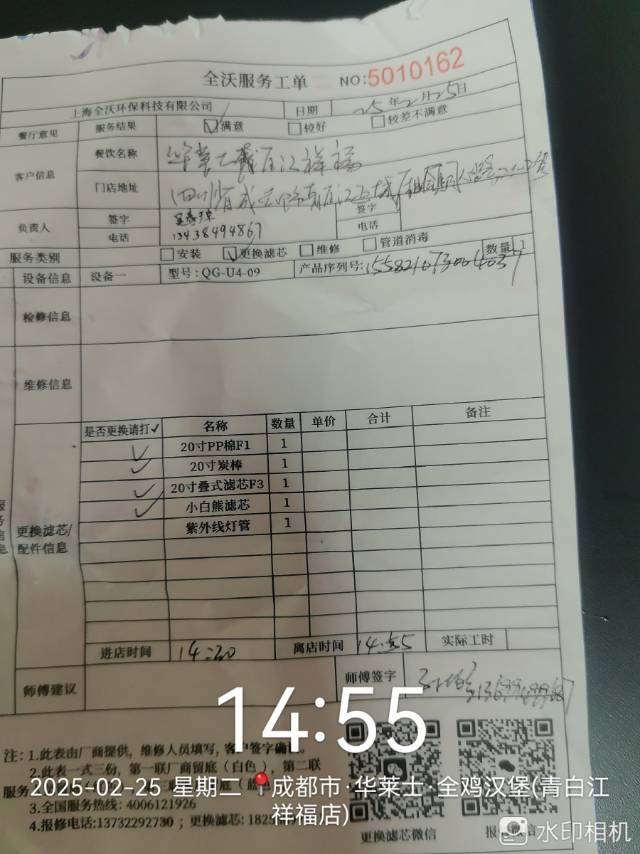 全沃服务工单 NO:5010162
上海全沃环保科技有限公司 日期 25年2月25日
餐厅意见 服务结果 ☑满意 □较好 □较差不满意
客户信息 餐饮名称 华莱士青白江祥福
门店地址 四川省成都市青白江区
负责人 签字 签字
电话 13438494867 电话
服务类别 □安装 ☑更换滤芯 □维修 □管道消毒 数量 1
设备信息 设备一 型号:QG-U4-09 产品序列号:
检修信息
维修信息
是否更换请打✓ 名称 数量 单价 合计 备注
✓ 20寸PP棉F1 1
✓ 20寸炭棒 1
✓ 20寸叠式滤芯F3 1
✓ 小白熊滤芯 1
紫外线灯管 1
更换滤芯/
配件信息
进店时间 14:20 离店时间 14:55 实际工时
师傅建议 师傅签字
14:55
注:1.此表由厂商提供，维修人员填写，客户签字确
2.此表一式三份，第一联厂商留底(白色)，第二联
服务
2025-02-25 星期二 成都市·华莱士·全鸡汉堡(青白江
祥福店)
3.全国服务热线:4006121926
4.报修电话:13732292730；更换滤芯:182
更换滤芯微信
水印相机